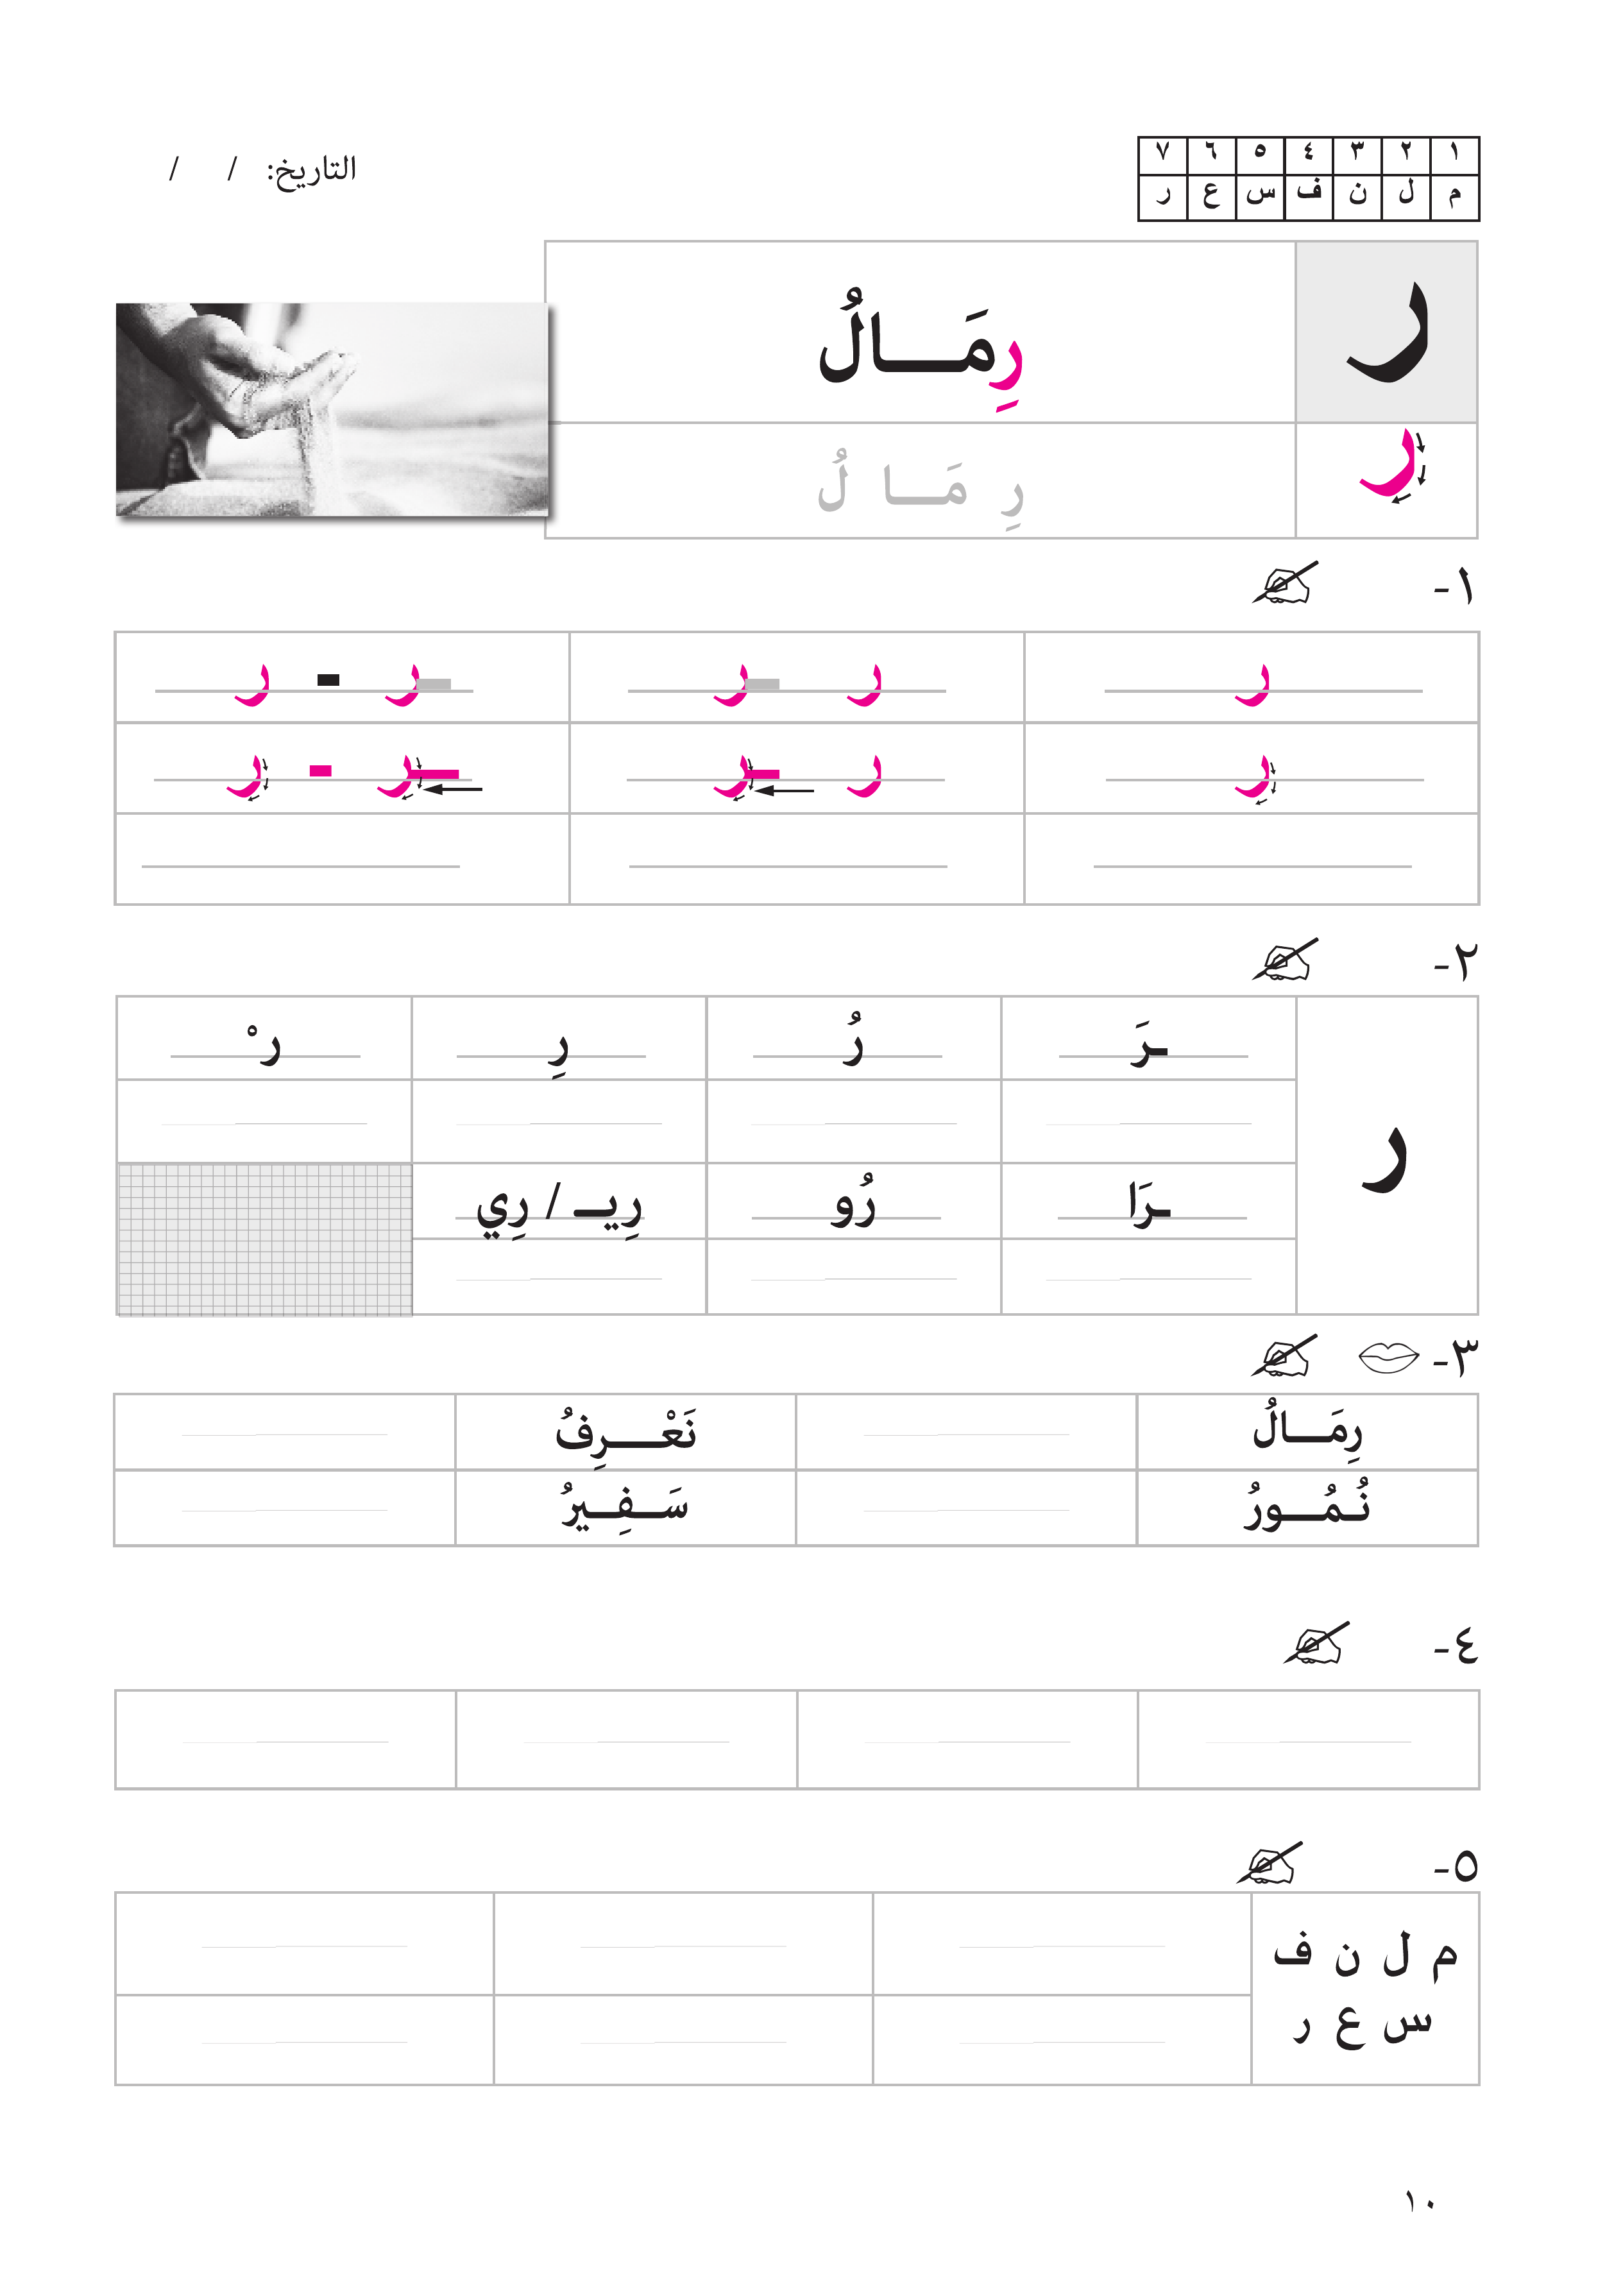 التاريخ: / /
١ ٢ ٣ ٤ ٥ ٦ ٧
م ل ن ف س ع ر
ر رِمَـــالُ
ر رِ مَـــا لُ
١-
ر ر ـر ـر - ر
ر ر ـر ـر - ر
٢-
ر
ـرَ رُ رِ رْ
ـرَا رُو رِيـ / رِي
٣-
رِمَـــالُ نَعْـــرِفُ
نُـمُـــورُ سَـــفِـــيرُ
٤-
٥-
م ل ن ف
س ع ر
١٠